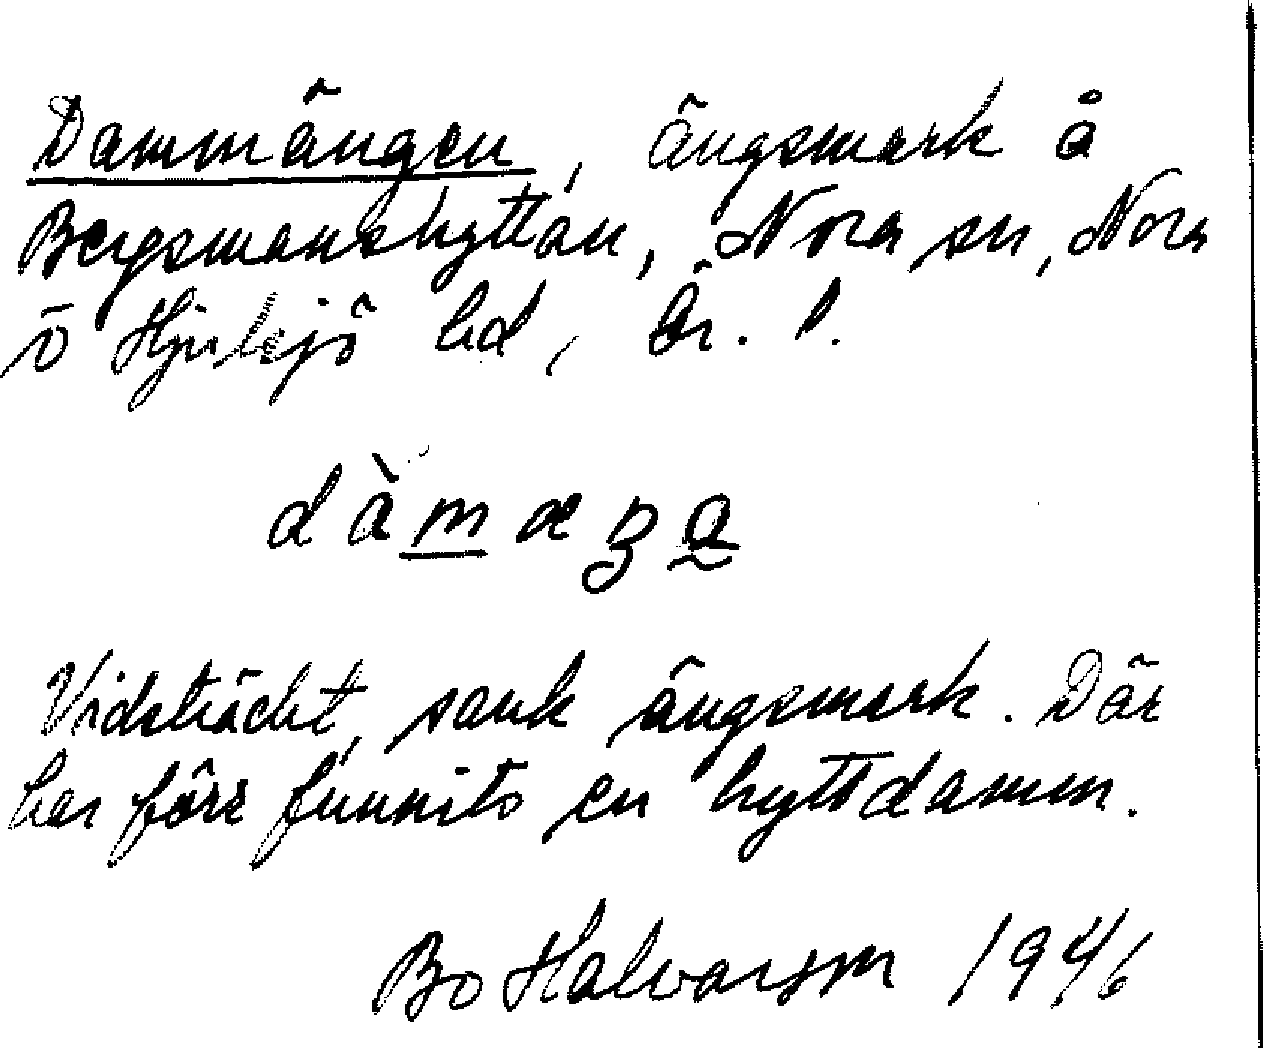 Dammängen, ängsmark å
Bergsmanshyttan, Nora sn, Nora
o Hjulsjö bd, Ör. l.
Vidsträckt, sank ängsmark. Där
har förr funnits en hyttdamm.
Bo Halvarsson 1946